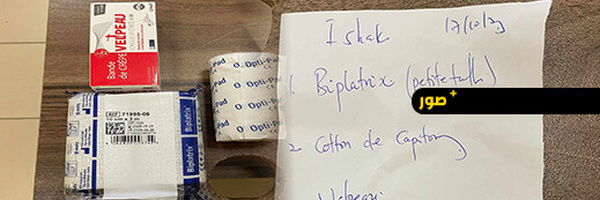 Bande
de CRÊPE
VELPEAU
Opti-Pad
REF 71995-06
Biplatrix
Ishak
17/10/23
1. Biplatrix (petite taille)
2 Cotton de Capiton
Velpeau
+ صور